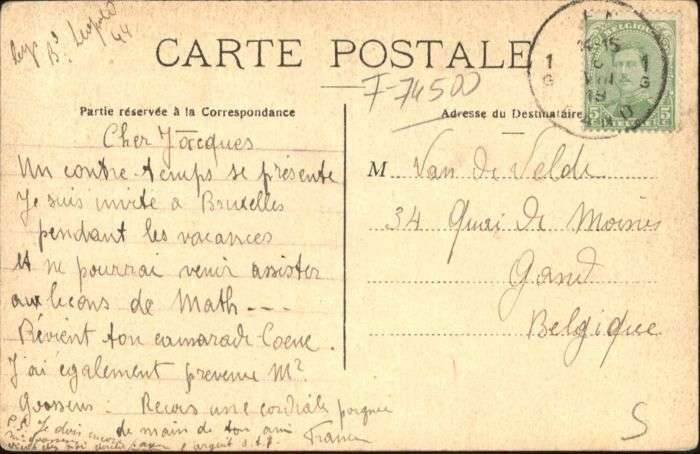 Bd Leopold
44
CARTE POSTALE
F-74500
Partie réservée à la Correspondance
Adresse du Destinataire
Cher Jacques
Un contre-temps se présente
Je suis invité à Bruxelles
pendant les vacances
et ne pourrai venir assister
aux lecons de Math ---
Révient ton camarade Coene.
J'ai également prevenu Mr
Goossens. Recois une cordiale poignée
de main de ton ami
Franc
P.S. Je dois encore
l'argent s.t.p.
M Van de Velde
34 Quai de Moines
Gand
Belgique
5
1 1
G G
15
VIII
19
BELGIQUE
5 5